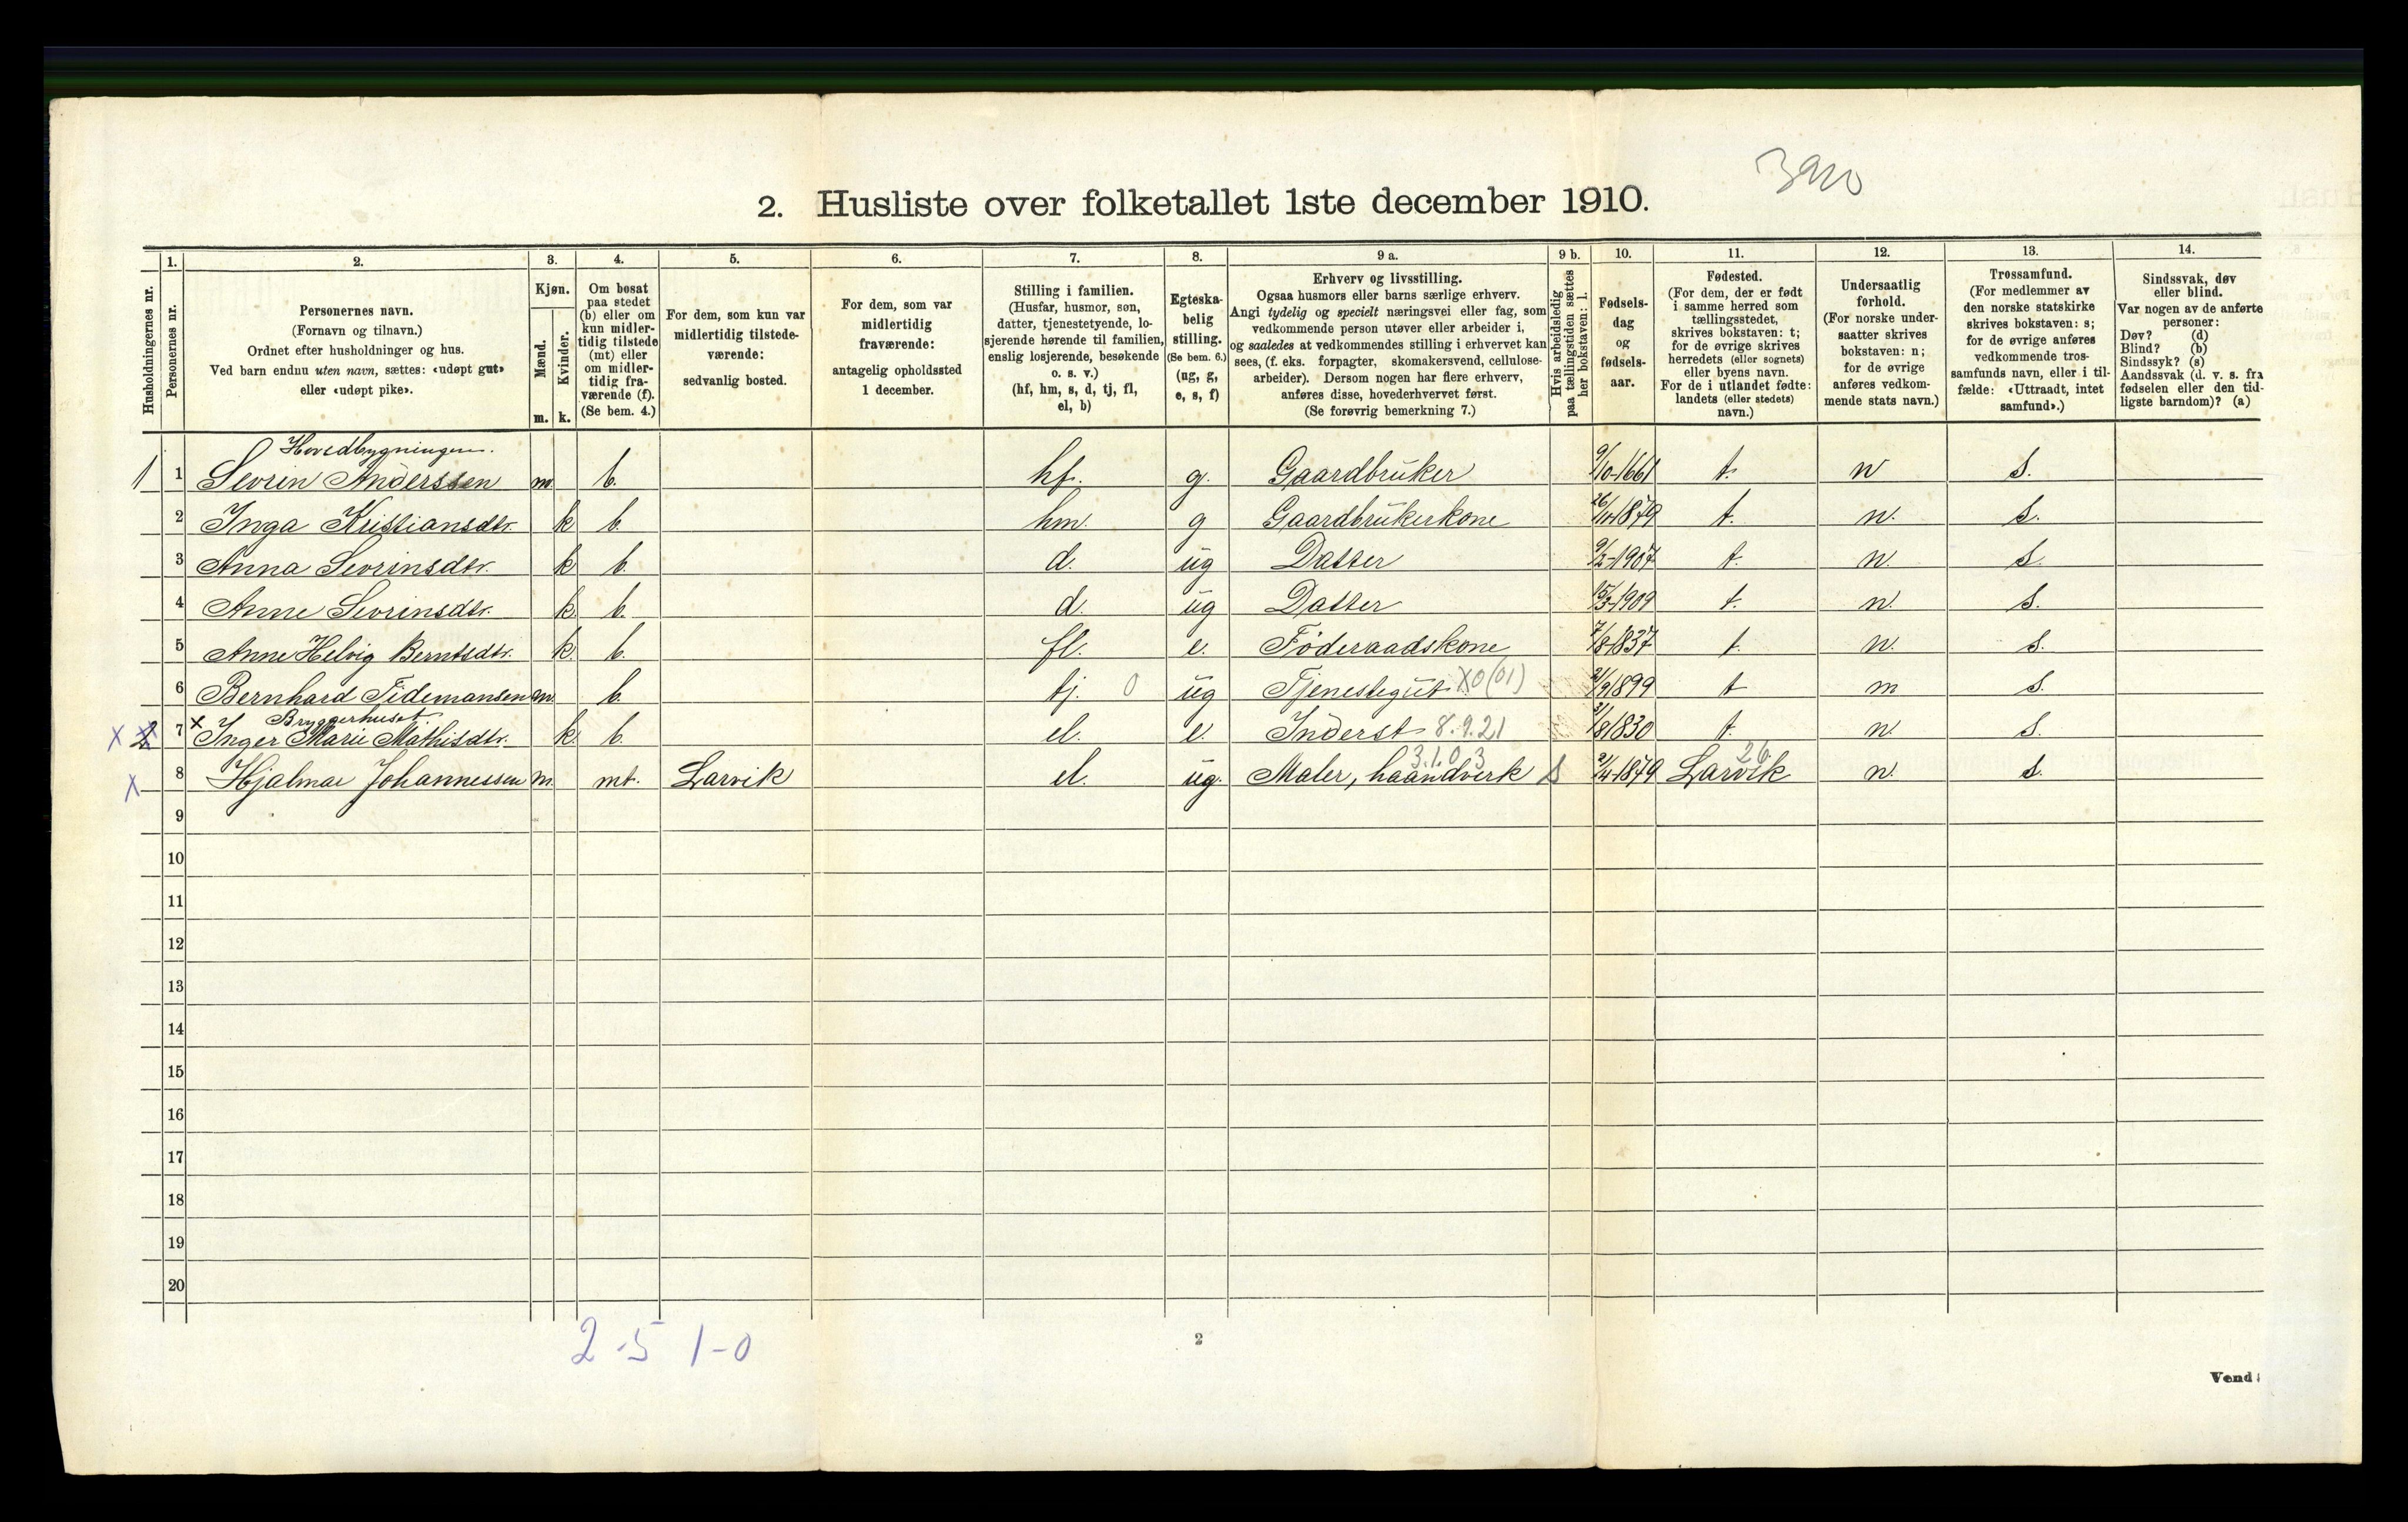 3920
2. Husliste over folketallet 1ste december 1910.
Husholdningernes nr.
1. Personernes nr.
2. Personernes navn. (Fornavn og tilnavn.) Ordnet efter husholdninger og hus. Ved barn endnu uten navn, sættes: «udøpt gut» eller «udøpt pike».
3. Kjøn. Mænd. m. Kvinder. k.
4. Om bosat paa stedet (b) eller om kun midlertidig tilstede (mt) eller om midlertidig fraværende (f). (Se bem. 4.)
5. For dem, som kun var midlertidig tilstedeværende: sedvanlig bosted.
6. For dem, som var midlertidig fraværende: antagelig opholdssted 1 december.
7. Stilling i familien. (Husfar, husmor, søn, datter, tjenestetyende, losjerende hørende til familien, enslig losjerende, besøkende o. s. v.) (hf, hm, s, d, tj, fl, el, b)
8. Egteskabelig stilling. (Se bem. 6.) (ug, g, e, s, f)
9 a. Erhverv og livsstilling. Ogsaa husmors eller barns særlige erhverv. Angi tydelig og specielt næringsvei eller fag, som vedkommende person utøver eller arbeider i, og saaledes at vedkommendes stilling i erhvervet kan sees, (f. eks. forpagter, skomakersvend, cellulosearbeider). Dersom nogen har flere erhverv, anføres disse, hovederhvervet først. (Se forøvrig bemerkning 7.)
9 b. Hvis arbeidsledig paa tællingstiden sættes her bokstaven: l.
10. Fødselsdag og fødselsaar.
11. Fødested. (For dem, der er født i samme herred som tællingsstedet, skrives bokstaven: t; for de øvrige skrives herredets (eller sognets) eller byens navn. For de i utlandet fødte: landets (eller stedets) navn.)
12. Undersaatlig forhold. (For norske undersaatter skrives bokstaven: n; for de øvrige anføres vedkommende stats navn.)
13. Trossamfund. (For medlemmer av den norske statskirke skrives bokstaven: s; for de øvrige anføres vedkommende trossamfunds navn, eller i tilfælde: «Uttraadt, intet samfund».)
14. Sindssvak, døv eller blind. Var nogen av de anførte personer: Døv? (d) Blind? (b) Sindssyk? (s) Aandssvak (d. v. s. fra fødselen eller den tidligste barndom)? (a)
Hovedbygningen.
1 1 Sevrin Anderssen m. b. hf. g. Gaardbruker 9/10-1661 t. n s.
2 Inga Kristiansdtr. k b. hm. g Gaardbrukerkone 26/10 1879 t. n. s.
3 Anna Sevrinsdtr. k b. d. ug Datter 9/2-1907 t. n. s.
4 Anne Sevrinsdtr. k. b. d. ug Datter 15/3-1909 t. n. s.
5 Anne Helvig Berntsdtr. k. b. fl. e. Föderaadskone 7/8-1837 t. n. s.
6 Bernhard Tidemansen m. b. tj. 0 ug Tjenestegut X0(01) 21/9 1899 t n s.
Bryggerhuset
x 2 7 x Inger Marie Mathisdtr. k. b. el. e. Inderst 8.9.21 3/8 1830 t. n. s.
3.1.0.3 26
x 8 Hjalmar Johannessen m. mt. Larvik el. ug. Maler, haandverk S 2/4-1879 Larvik n. s.
9
10
11
12
13
14
15
16
17
18
19
20
2-5 1-0
2
Vend